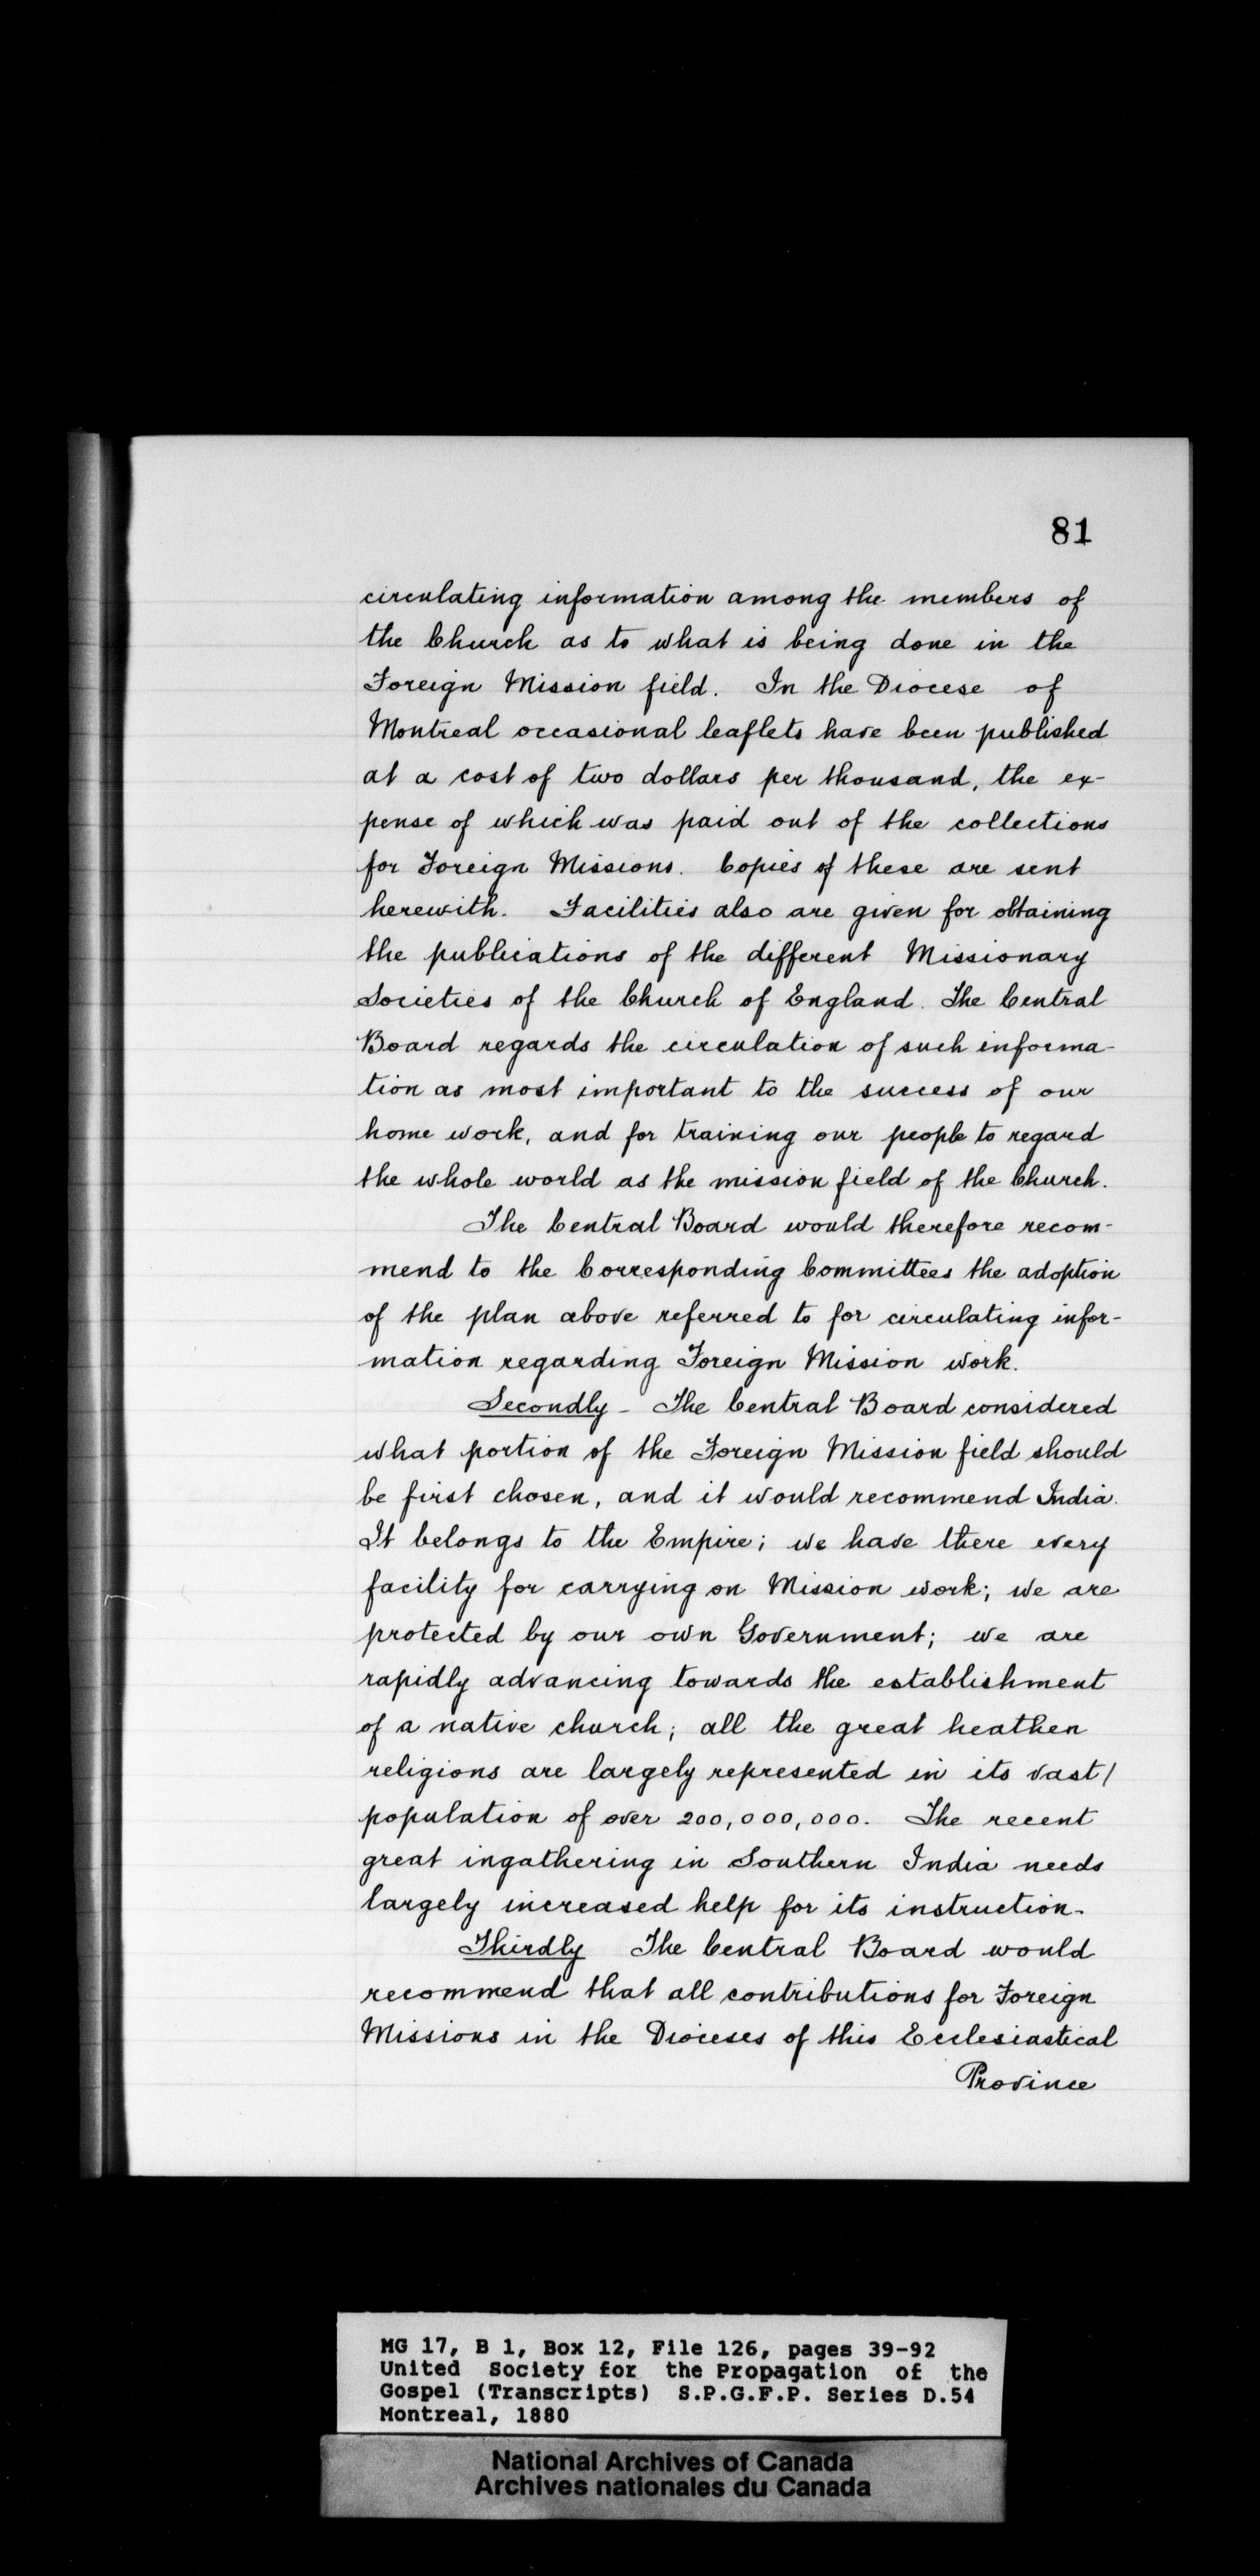 81
circulating information among the members of
the Church as to what is being done in the
Foreign Mission field. In the Diocese of
Montreal occasional leaflets have been published
at a cost of two dollars per thousand, the ex-
pense of which was paid out of the collections
for Foreign Missions. Copies of these are sent
herewith. Facilities also are given for obtaining
the publications of the different Missionary
Societies of the Church of England. The Central
Board regards the circulation of such informa-
tion as most important to the success of our
home work, and for training our people to regard
the whole world as the mission field of the Church.
The Central Board would therefore recom-
mend to the Corresponding Committees the adoption
of the plan above referred to for circulating infor-
mation regarding Foreign Mission work.
Secondly - The Central Board considered
what portion of the Foreign Mission field should
be first chosen, and it would recommend India.
It belongs to the Empire; we have there every
facility for carrying on Mission work; we are
protected by our own Government; we are
rapidly advancing towards the establishment
of a native church; all the great heathen
religions are largely represented in its vast/
population of over 200,000,000. The recent
great ingathering in Southern India needs
largely increased help for its instruction.
Thirdly The Central Board would
recommend that all contributions for Foreign
Missions in the Dioceses of this Ecclesiastical
Province
MG 17, B 1, Box 12, File 126, pages 39-92
United Society for the Propagation of the
Gospel (Transcripts) S.P.G.F.P. Series D.54
Montreal, 1880
National Archives of Canada
Archives nationales du Canada